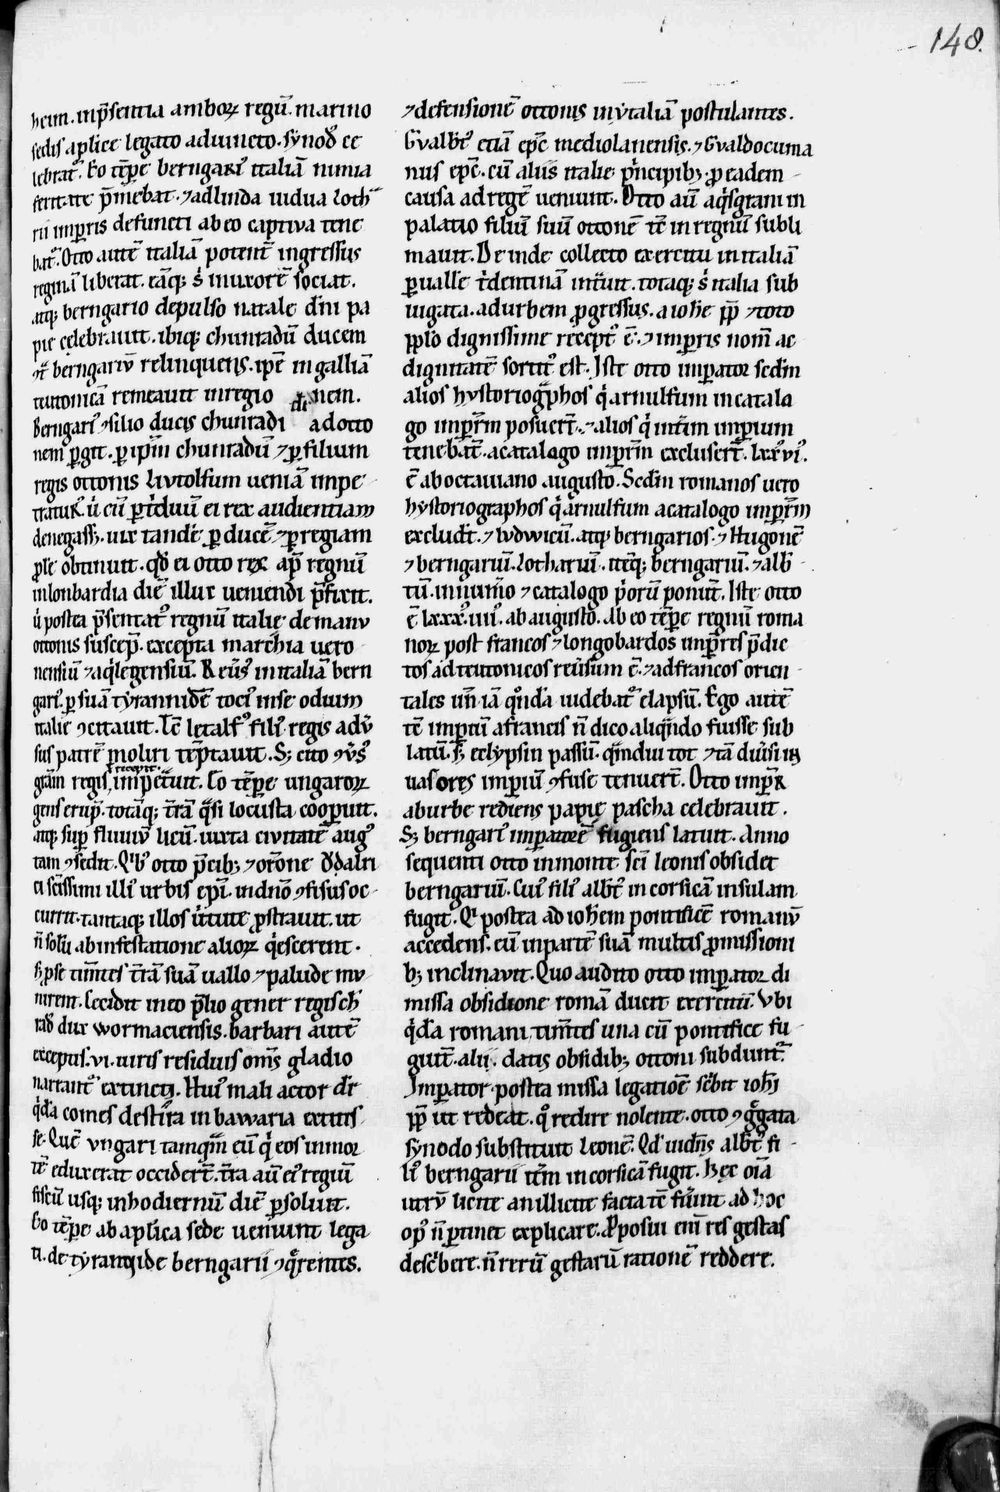 148.
heim. inp̄sentia amboꝝ regū. marino
sedis aplice legato adiuncto. synod' ce
lebrat᷑. Eo tēpe berngari' italiā nimia
feritate p̄mebat. ⁊ adlinda uidua loth
rii impris defuncti ab eo captiva tene
bat᷑. Otto autē italiā potent᷑ ingressus
reginā liberat. eāq; s' in uxorē sociat.
atq; berngario depulso natale dn̄i pa
pie celebrauit. ibiq; chunradū ducem
⁊t᷑ berngariū relinquens. ipē in galliā
teutonicā remeauit in regio nem.
Berngari' ⁊ filio ducis chunradi ad otto
nem pgit. p ipm chunradū ⁊ p filium
regis ottonis liutolfum ueniā impe
tratur'. ū cū p tduū ei rex audientiam
denegass;. uix tandē p ducē ⁊ p regiam
ple obtinuit. qd ei otto rex ap regnū
in lonbardia diē illuc ueniendi p̄fixit.
ū postea p̄sentat' regnū italie de manu
ottonis suscep. excepta marchia uero
nensiū ⁊ aqlegensiū. Reūs' in italiā bern
gari'. p suā tyrannidē toci' in se odium
italie ⁊citauit. Tē letalf' fili' regis adū
sus patrē moliri tēptauit. S; cito ⁊ūs'
grām regis impetuit. Eo tēpe ungaroꝝ
gens erup. totāq; trā qsi locusta cooperuit.
atq; sup fluuiū licū. iuxta civitatē aug'
tam ⁊sedit. Qb' otto pcib; ⁊ orōne odalri
ci scīssimi illi' urbis epi. in dn̄o ⁊fisus oc
currit. tantaq; illos ūtute pstrauit. ut
n̄ solū ab infestatione alioꝝ qescerint.
s; pse timtes trā suā uallo ⁊ palude mu
nirent. Cecidit in eo p̄lio gener regis ch
rad' dux wormaciensis. barbari autē
exceptis. vi. uiris residuis om̄s gladio
narrant᷑ extincti. Hui' mali actor dr
qda comes destra in bawaria extitis
se. Quē vngari tamqm eū q eos in mor
tē eduxerat occidert. tra aū ei' regiū
fiscū usq; in hodiernū diē psoluit.
Eo tēpe ab aplica sede ueniunt lega
ti. de tyrannide berngarii ⁊qrentes.
⁊ defensionē ottonis in ytaliā postulantes.
Gvalbt' etiā epc mediolanensis. ⁊ Gvaldo cuma
nus epc. cū aliis italie p̄ncipib; p eadem
causa ad regē ueniunt. Otto aū aqsgrani in
palatio filiū suū ottonē tē in regnū subli
mauit. Deinde collecto exercitu in italiā
p ualle tdentinā intuit. totaq; s' italia sub
iugata. ad urbem pgressus. a iohe pp ⁊ toto
pplo dignissime recept' ē. ⁊ impris nom̄ ac
dignitatē sortit' est. Iste otto impator sedm
alios hystoriogphos q arnulfum in catala
go imprm posuert. ⁊ alios q intim imperium
tenebāt. a catalago imprm excluserī. lxxvi'.
ē ab octauiano augusto. Sedm romanos uero
hystoriographos q arnulfum a catalogo imprm
excludt. ⁊ lvdwicū. atq; berngarios. ⁊ Hugonē
⁊ berngariū. lothariū. iteq; berngariū. ⁊ alb
tū. in numo ⁊ catalogo porū ponūt. Iste otto
ē lxxx. iiii'. ab augusto. Ab eo tēpe regnū roma
noꝝ post francos ⁊ longobardos impres p̄dic
tos ad teutonicos reūsum ē. ⁊ ad francos orien
tales un̄ iā qnda uidebat' elapsū. Ego autē
tē impiū a francis n̄ dico aliqndo fuisse sub
latū. s; eclypsin passū. qmdui tot ⁊ tā duīsi in
uasores imperiū ⁊fuse tenuert. Otto impr
ab urbe rediens papie pascha celebrauit.
S; berngari' imperatorē fugiens latuit. Anno
sequenti otto in monte sci leonis obsidet
berngariū. Cui' fili' albt' in corsicā insulam
fugit'. Et postea ad iohem pontificē romanū
accedens. eū in partē suā multis pmissioni
b; inclinavit. Quo audito otto impator di
missa obsidione romā ducit exercitū. Vbi
qda romani timtes una cū pontifice fu
giūt. alii. datis obsidib; ottoni subdunt᷑.
Imperator postea missa legatiōe scbit iohi
pp ut redeat. q redire nolente. otto ⁊ggata
synodo substituit leonē. Qd uidēs albt' fi
li' berngarii itm in corsicā fugit. Hec oīa
utrū licite an illicite facta tē fuint ad hoc
op' n̄ ptinet explicare. Pposui enī res gestas
descbere. n̄ rerū gestarū rationē reddere.